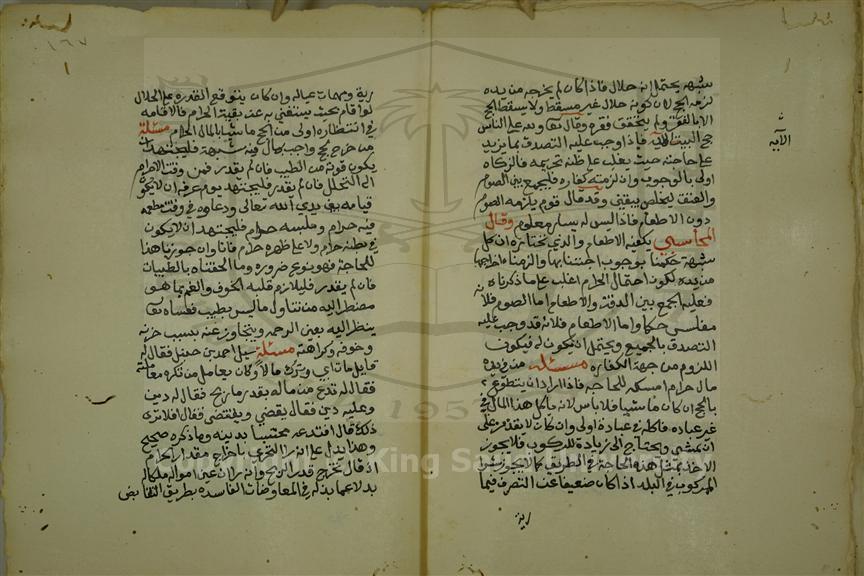 شبهة يحتمل انه حلال فاذا كان لم يخرجه من يده
لزمه الحج لان كونه حلال غير مسقط ولا يسقط الحج
الا بالفقر ولم يتحقق فقره وقال تعا ولله على الناس
حج البيت الآية فاذا وجب عليه التصدق بما يزيد
على حاجته حيث يغلب على ظنه تحريمه فالزكاه
اولى بالوجوب وان لزمته كفاره فليجمع بين الصوم
والعتق ليتخلص بيقين وقد قال قوم يلزمه الصوم
دون الاطعام فاذا ليس له يسار معلوم وقال
المحاسبي يكفيه الاطعام والذي نختاره ان كل
شبهة حكمنا بوجوب اجتنابها والزمناه اخراجها
من يده لكون احتمال الحرام اغلب على ما ذكرناه
فعليه الجمع بين والاطعام اما الصوم فلانه
مفلس حكما واما الاطعام فلانه قد وجب عليه
التصدق بالجميع ويحتمل ان يكون له فيكون
اللزوم من جهة الكفاره مسئله من في يده
مال حرام امسكه للحاجة فاذا اراد ان يتطوع
بالحج ان كان ماشيا فلا باس لانه ياكل هذا المال في
غير عباده فاكله في عبادة اولى وان كان لا يقدر على
ان يمشي ويحتاج الى زيادة للركوب فلا يجوز
الاخذ لمثل هذه الحاجة في الطريق كما لا يجوز شرا
المركوب في البلد اذا كان ضعيفا عن التصرف فيما
رية
الآية
رية ومهمات عياله وان كان يتوقع القدرة على الحلال
لو اقام بحيث يستغني به عن بقية الحرام فالاقامه
في انتظاره اولى من الحج ماشيا بالمال الحرام مسئلة
من خرج لحج واجب بمال فيه شبهة فليجتهد ان
يكون قوته من الطيب فان لم يقدر فمن وقت الاحرام
الى التحلل فان لم يقدر فليجتهد يوم عرفه ان لا يكون
قيامه بين يدي الله تعالى ودعاوه في وقت مطعمه
فيه حرام وملبسه حرام فليجتهد ان لا يكون
في بطنه حرام ولا على ظهره حرام فانا وان جوزنا هذا
للحاجة فهو نوع ضرورة وما الحقناه بالطيبات
فان لم يقدر فليلازم قلبه الخوف والغم بما هو
مضطر اليه من تناول ما ليس بطيب فعساه
ينظر اليه بعين الرحمه ويتجاوز عنه بسبب حزنه
وخوفه وكراهته مسئلة سيل احمد بن حنبل فقال له
قايل مات ابي وترك مالا وكان يعامل من تكره معاملته
فقال له تدع من ماله بقدر ما ربح فقال له دين
وعليه دين فقال يقضي ويقتضي فقال افلا ترى
ذلك قال افتدعه محتبسا بدينه وما ذكره صحيح
وهذا يدل على انه راى التحري باخراج مقدار الحرام
اذ قال تخرج قدر الربح وانه راى ان عين امواله ملك له
بدلا عما بذله في المعاوضات الفاسده بطريق التقابض
١٦٧